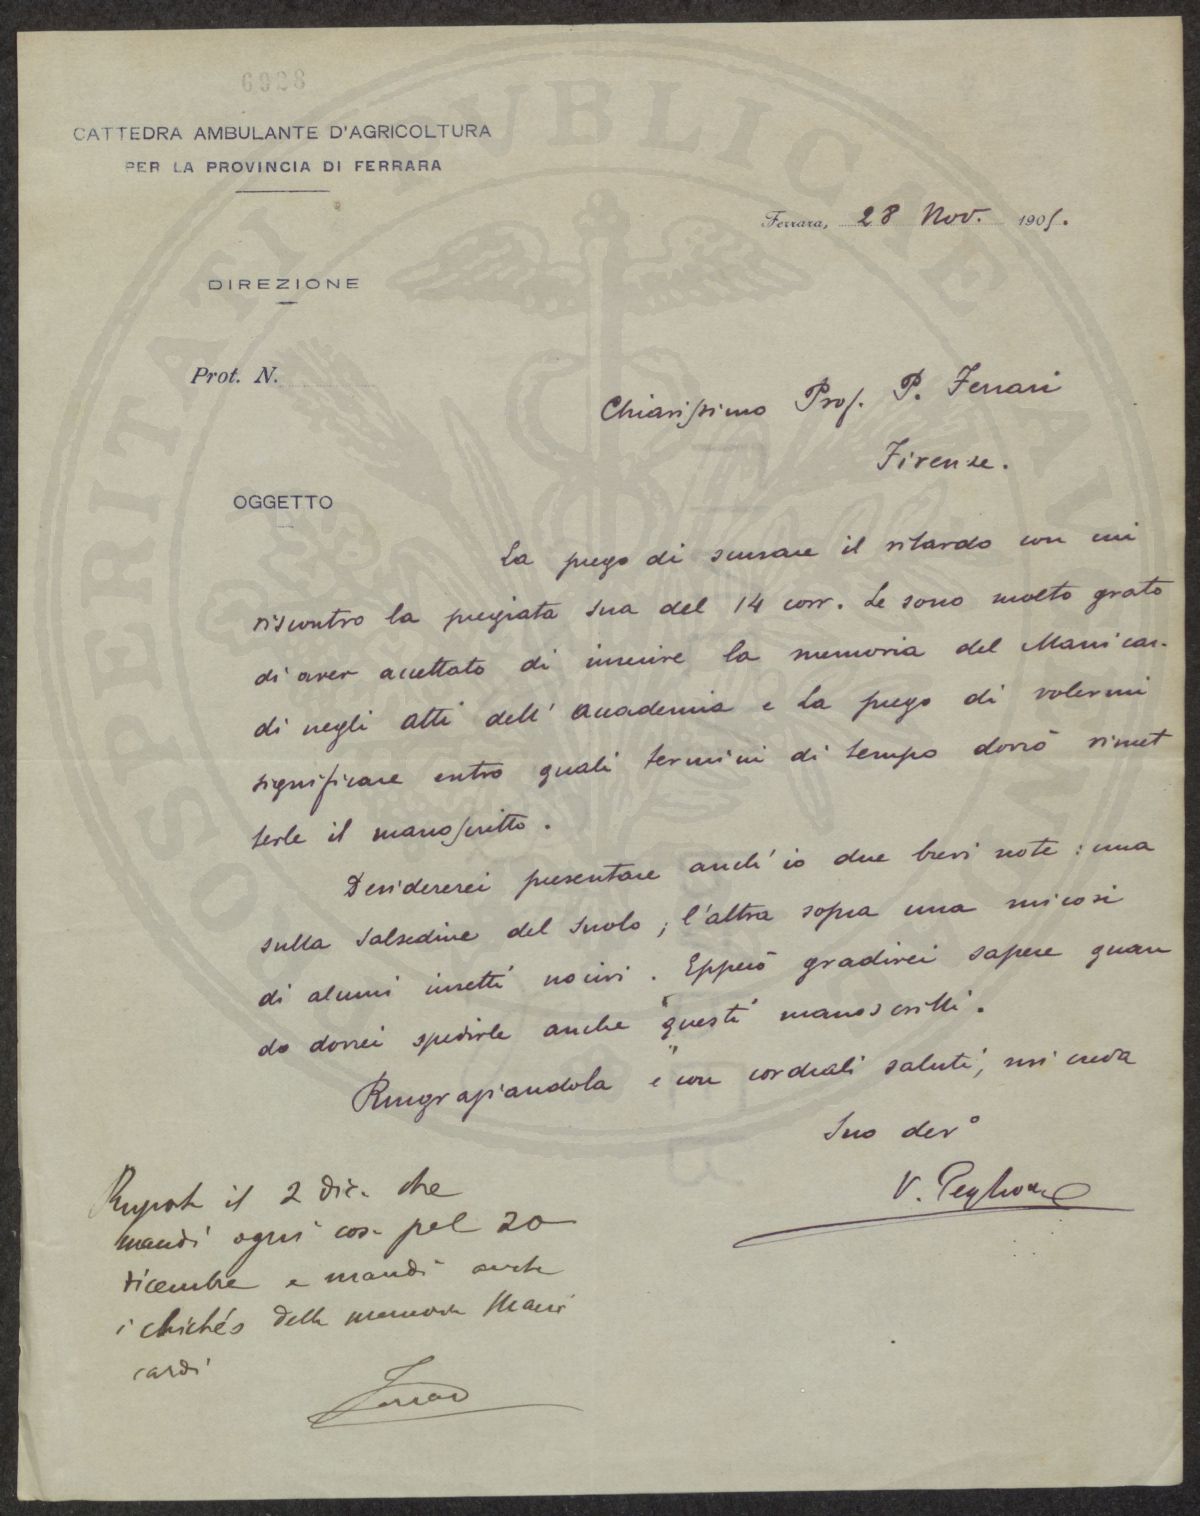 6928
CATTEDRA AMBULANTE D'AGRICOLTURA
PER LA PROVINCIA DI FERRARA
Ferrara, 28 Nov. 1905.
DIREZIONE
Prot. N.
Chiarissimo Prof. P. Ferrari
Firenze.
OGGETTO
La prego di scusare il ritardo con cui
riscontro la pregiata sua del 14 corr. Le sono molto grato
di aver accettato di inserire la memoria del Manicar-
di negli atti dell'Accademia e La prego di volermi
significare entro quali termini di tempo dovrò rimet
terle il manoscritto.
Desidererei presentare anch'io due brevi note: una
sulla salsedine del suolo; l'altra sopra una micosi
di alcuni insetti nocivi. Epperò gradirei sapere quan
do dovrei spedirle anche questi manoscritti.
Ringraziandola e con cordiali saluti, mi creda
Suo devº
V. Peglion
Rispost. il 2 dic. che
mandi ogni cosa pel 20
dicembre e mandi anche
i clichés della memoria Mani
cardi
Ferrari
PUBLICAE